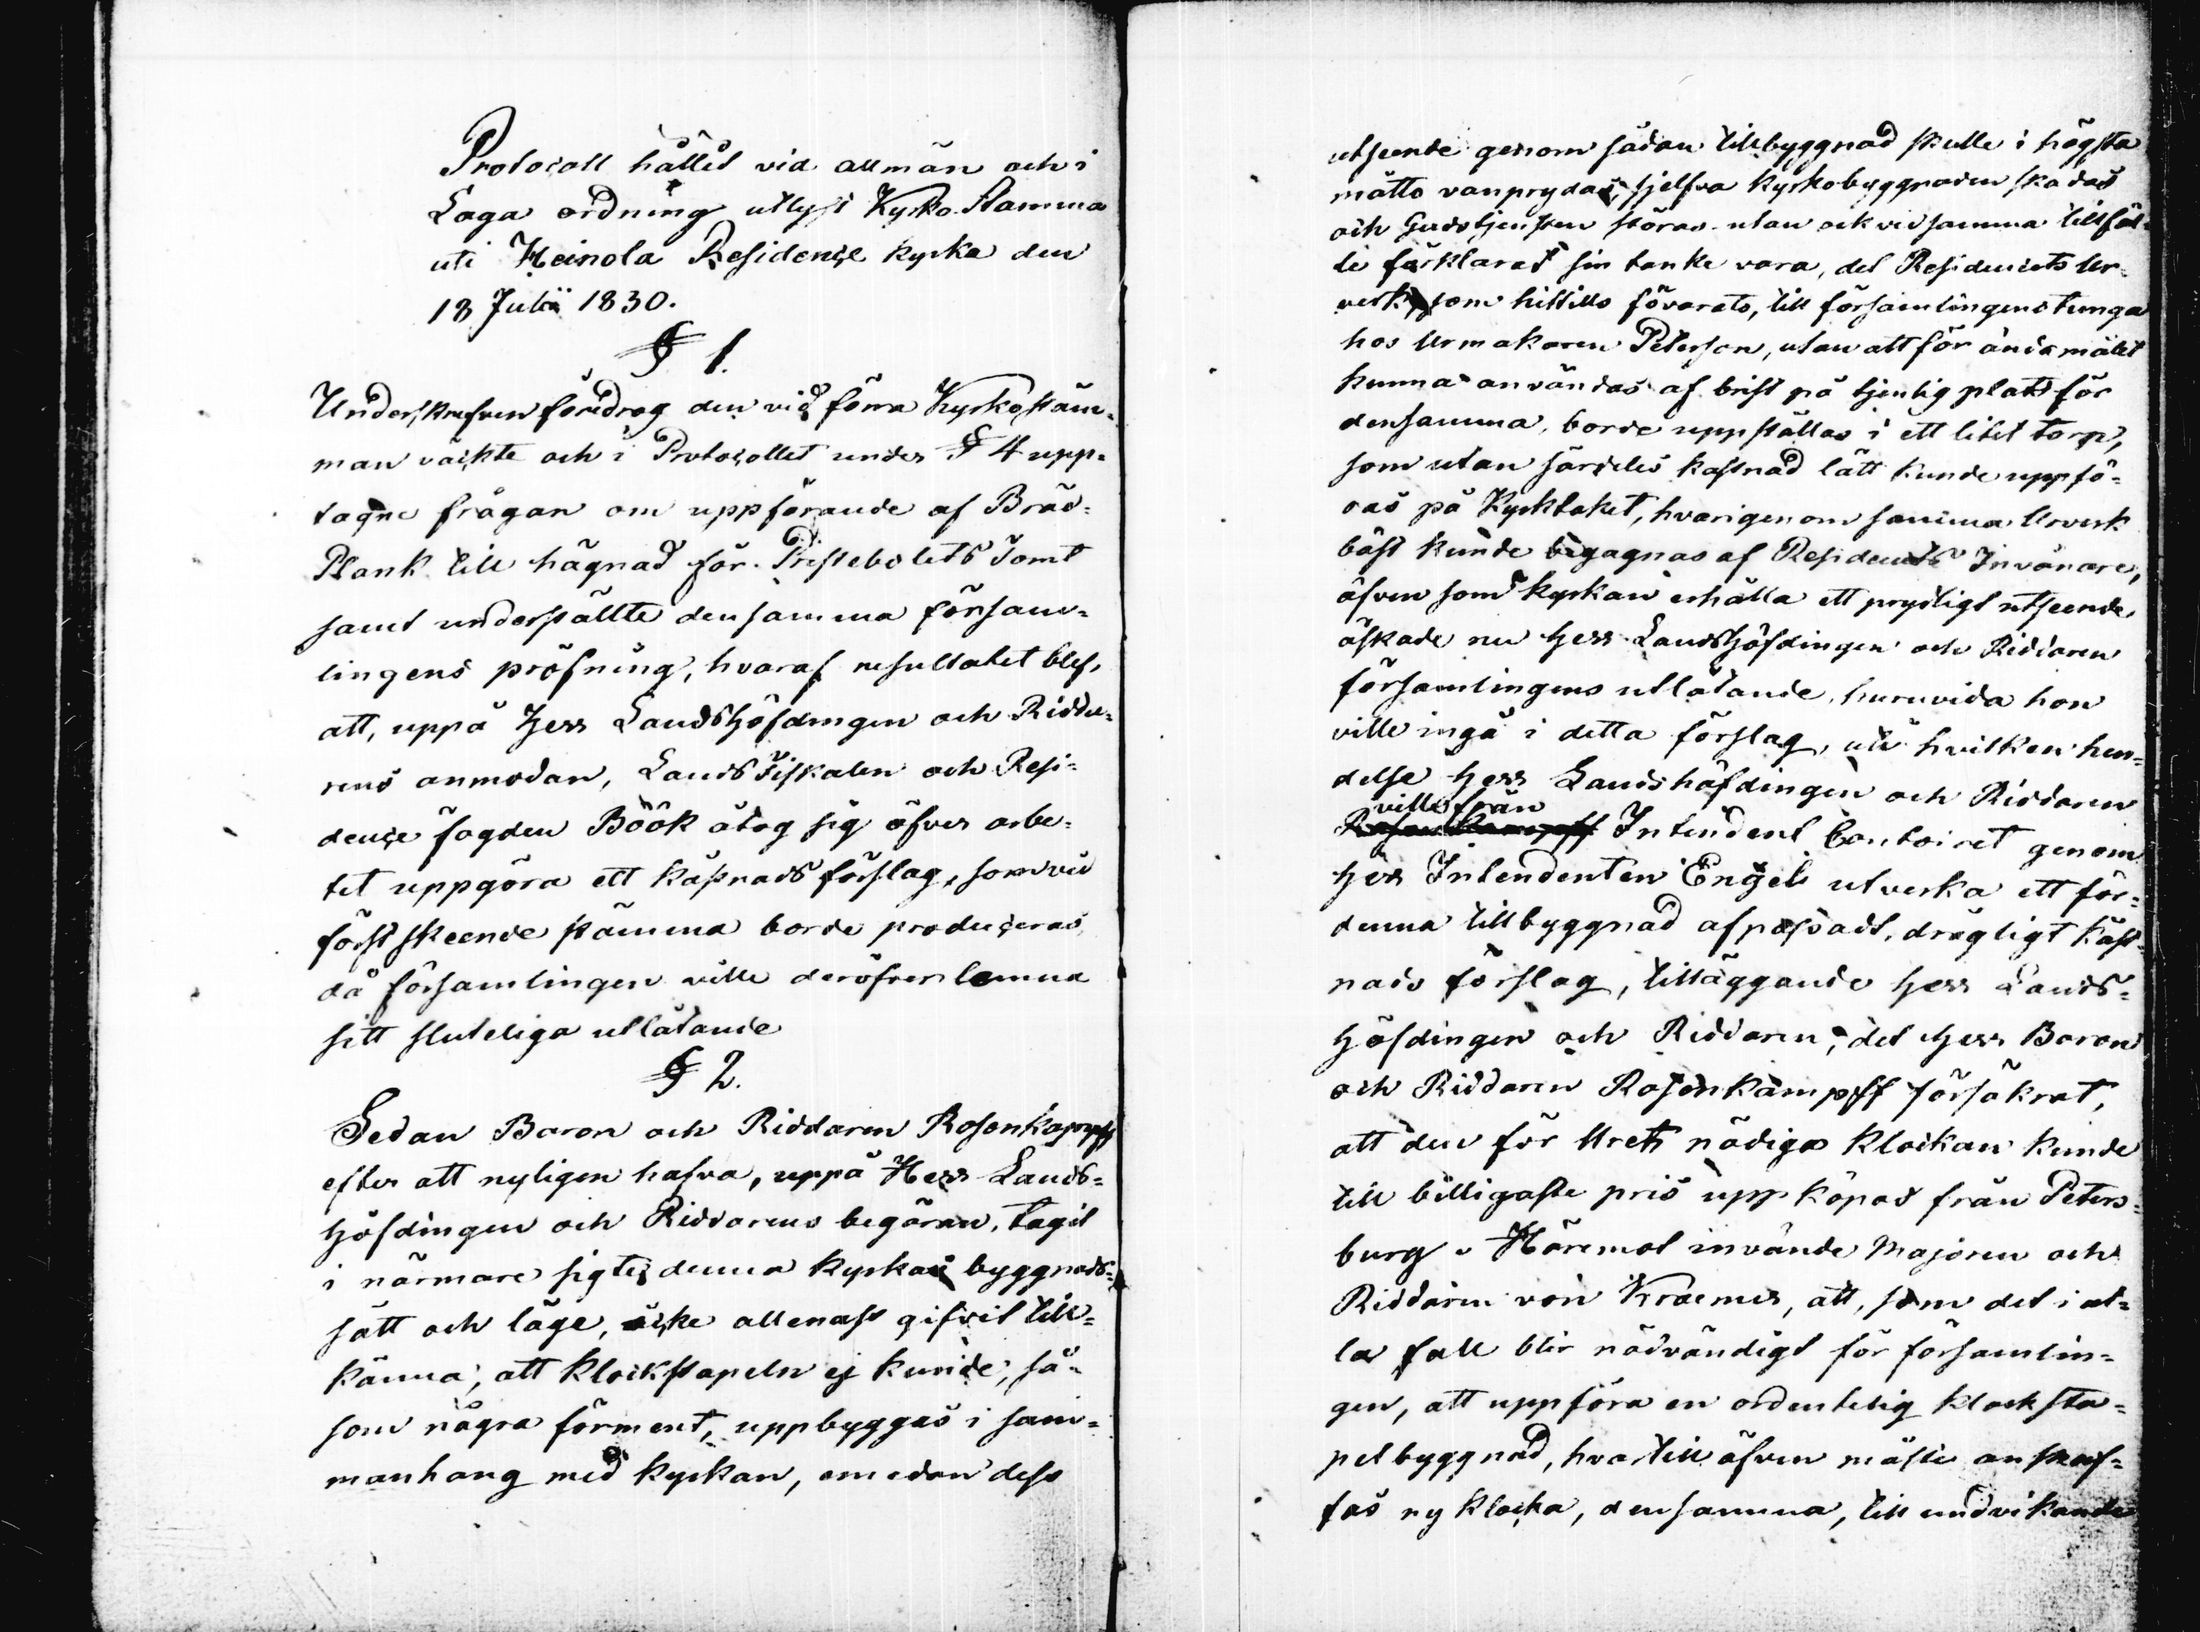 Protocoll hållet vid allmän och i
Laga ordning utlyst Kyrko Stämma
uti Heinola Residençe kyrka den
18 Julii 1830.
§ 1.
Underskrefven föredrog den vid förra Kyrkostäm-
man väckte och i Protocollet under § 4 upp-
tagne frågan om uppförande af Bräd-
Plank till hägnad för Prestebolets Tomt
samt underställte densamma försam-
lingens pröfning, hvaraf resultatet blef,
att, uppå Herr Landshöfdingen och Ridda-
rens anmodan, Landsfiskalen och Resi-
dençefogden Böök åtog sig öfver arbe-
tet uppgöra ett kåstnadsförslag, som vid
först skeende stämma borde produceras,
då församlingen ville deröfver lemna
sitt sluteliga utlåtande
§ 2.
Sedan Baron och Riddaren Rosenkampff
efter att nyligen hafva, uppå Herr Lands-
höfdingen och Riddarens begäran, tagit
i närmare sigte denna kyrkas byggnads-
sätt och läge, icke allenast gifvit till-
känna, att klockstapeln ej kunde, så-
som några förment, uppbyggas i sam-
manhang med kyrkan, emedan dess
utseende genom sådan tillbyggnad skulle i högsta
måtto vanprydas, sjelfva kyrkobyggnaden skadas
och Gudstjensten störas utan ock vid samma tillfäl-
le förklarat sin tanke vara, det Residencets Ur-
verk som hittills förvarats, till församlingens tunga
hos Urmakaren Peterson, utan att för ändamålet
kunna användas af brist på tjenlig plats för
densamma, borde uppställas i ett litet torn,
som utan särdeles kostnad lätt kunde uppfö-
ras på Kyrktaket, hvarigenom samma Urverk
bäst kunde begagnas af Residencets Invånare,
äfven som kyrkan erhålla ett prydligt utseende
äskade nu Herr Landshöfdingen och Riddaren
församlingens utlåtande, huruvida hon
ville ingå i detta förslag, uti hvilken hän-
delse Herr Landshöfdingen och Riddaren
ville från
Intendent Contoiret genom
Herr Intendenten Engel utverka ett för
denna tillbyggnad afpassadt, drägligt kåst-
nads förslag, tilläggande Herr Lands-
höfdingen och Riddaren, det Herr Baron
och Riddaren Rosenkampff försäkrat,
att den för Uret nödiga klockan kunde
till billigaste pris uppköpas från Peters-
burg. Häremot invände Majoren och
Riddaren von Kraemer, att, som det i al-
la fall blir nödvändigt för församlin-
gen, att uppföra en ordentelig klocksta-
pelbyggnad, hvartill äfven måste anskaf-
fas ny klocka, densamma, till undvikande